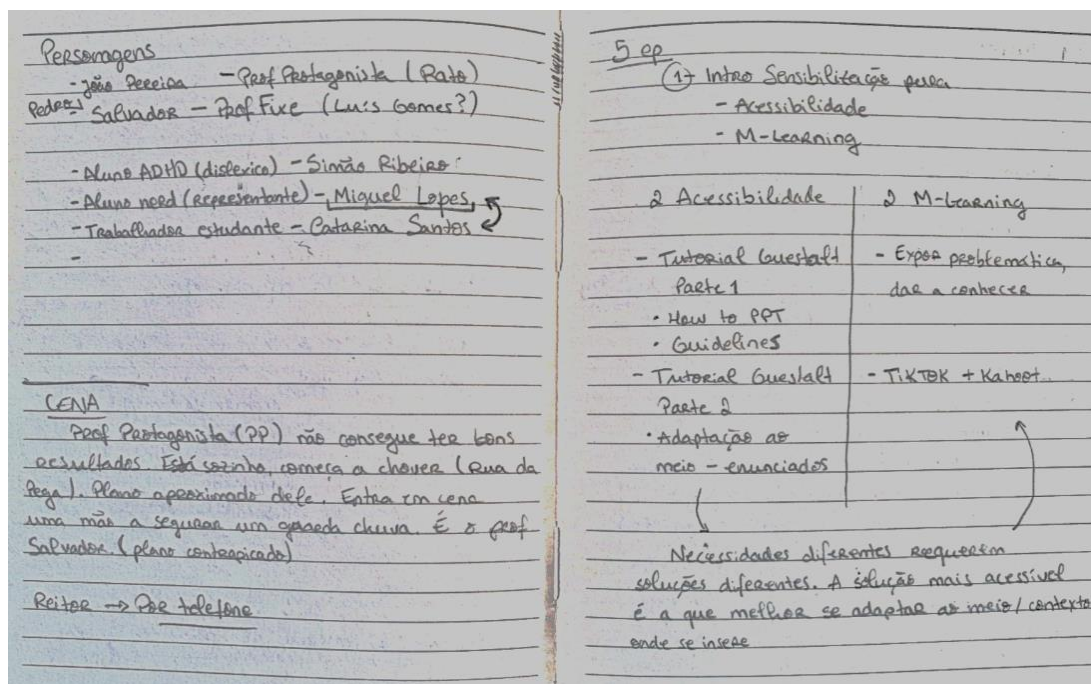 Personagens
- João Pereira - Prof Protagonista (Rato)
Pedro? - Salvador - Prof Fixe (Luís Gomes?)
- Aluno ADHD (dislexico) - Simão Ribeiro
- Aluno nerd (Representante) - Miguel Lopes
- Trabalhador estudante - Catarina Santos
-
CENA
Prof Protagonista (PP) não consegue ter bons
resultados. Está sozinho, começa a chover (Rua da
Pega). Plano aproximado dele. Entra em cena
uma mão a segurar um guarda chuva. É o prof
Salvador. (plano contrapicado)
Reitor → Por telefone
5 ep
1 → Intro Sensibilização para
- Acessibilidade
- M-Learning
2 Acessibilidade
- Tutorial Guestalt
Parte 1
• How to PPT
• Guidelines
- Tutorial Guestalt
Parte 2
• Adaptação ao
meio - enunciados
2 M-Learning
- Expor problematica,
dar a conhecer
- TikTok + Kahoot...
Necessidades diferentes requerem
soluções diferentes. A solução mais acessível
é a que melhor se adaptar ao meio/contexto
onde se insere